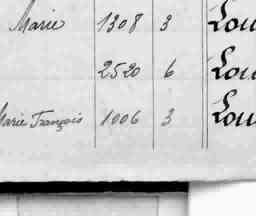 Marie 1308 3 Lou
2520 6 Lou
Marie François 1006 3 Lou